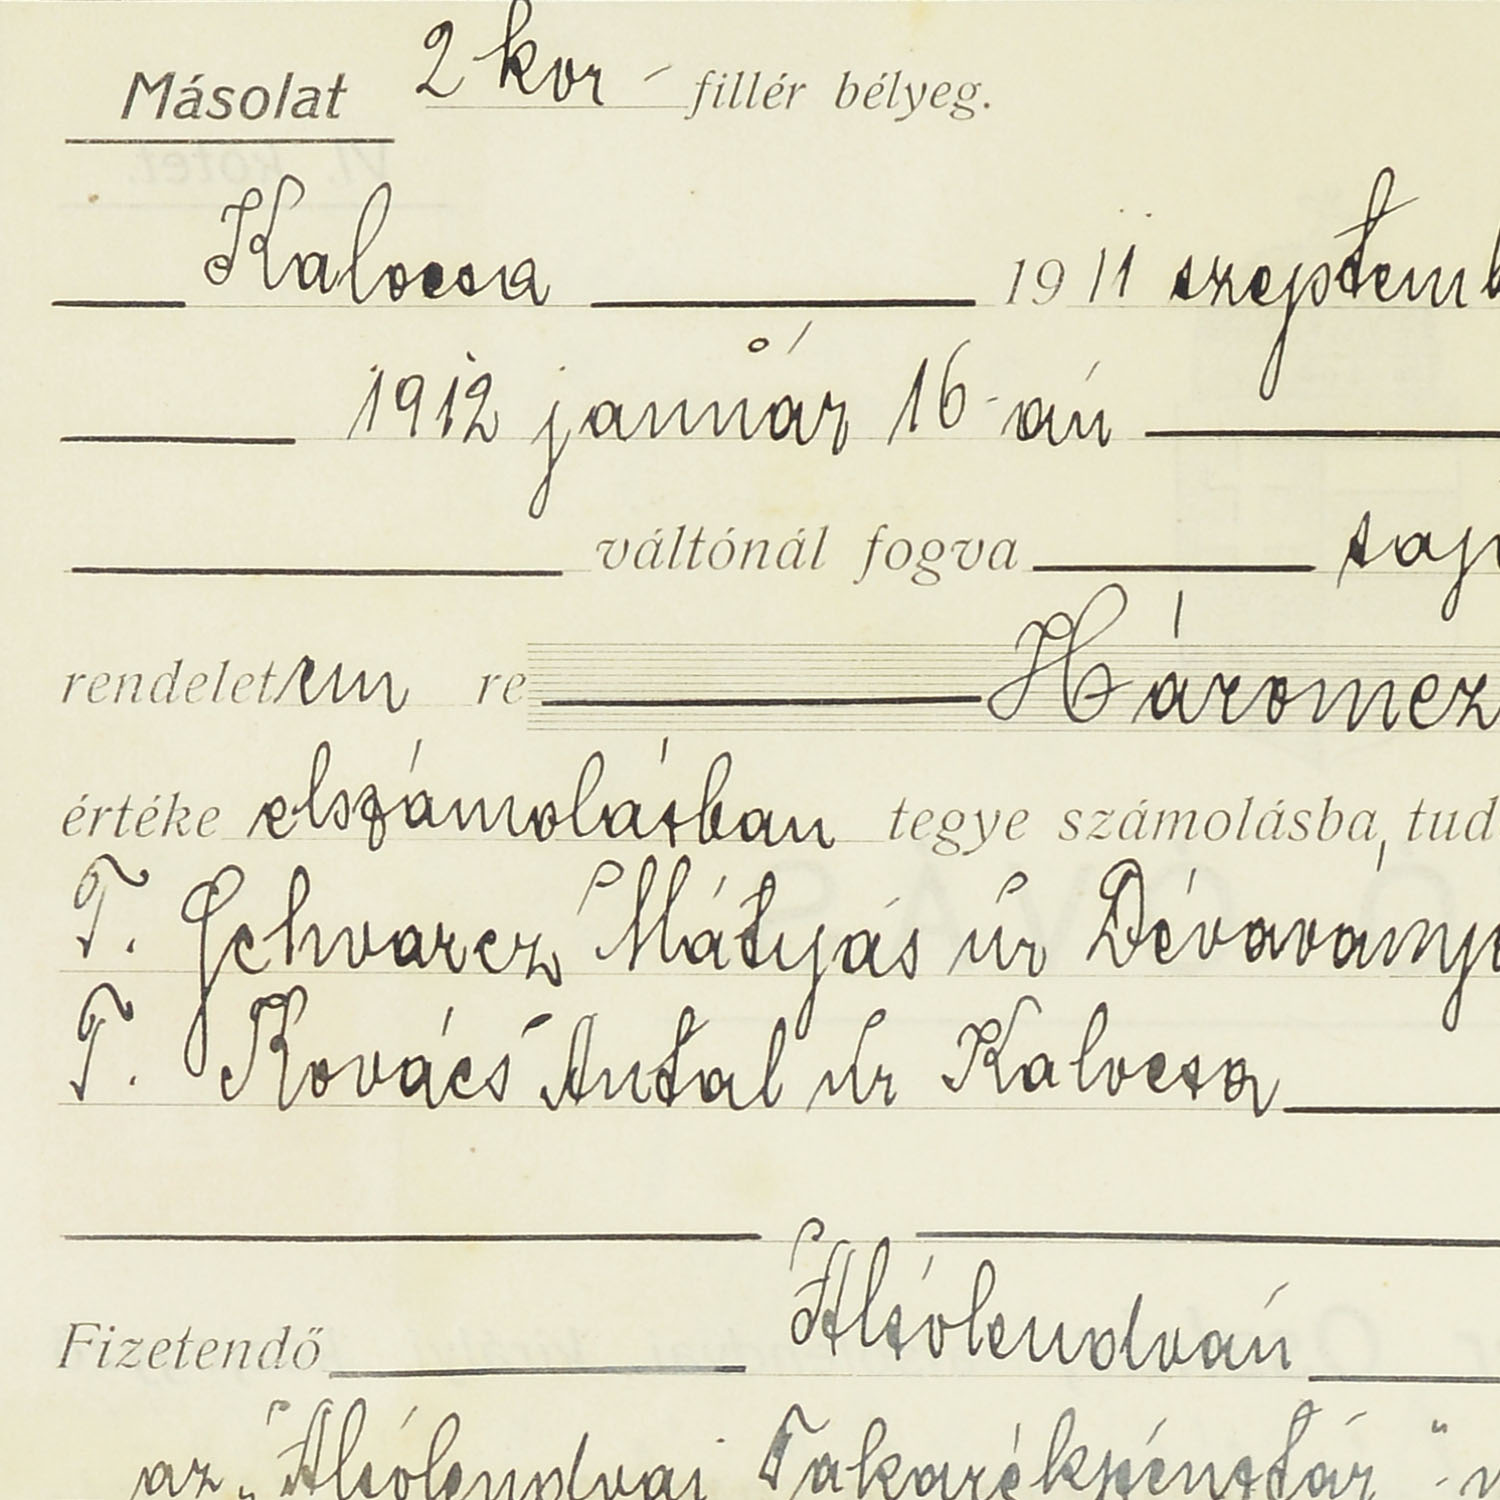 Másolat 2 kor - fillér bélyeg.
Kalocsa 1911 szeptemb
1912 január 16-án
váltónál fogva saj
rendelet/em re Háromez
értéke elszámolásban tegye számolásba, tud
T. Schvarcz Mátyás úr Dévaványa
T. Kovács Antal úr Kalocsa
Fizetendő Alsólendván
az „Alsólendvai Takarékpénztár"-n